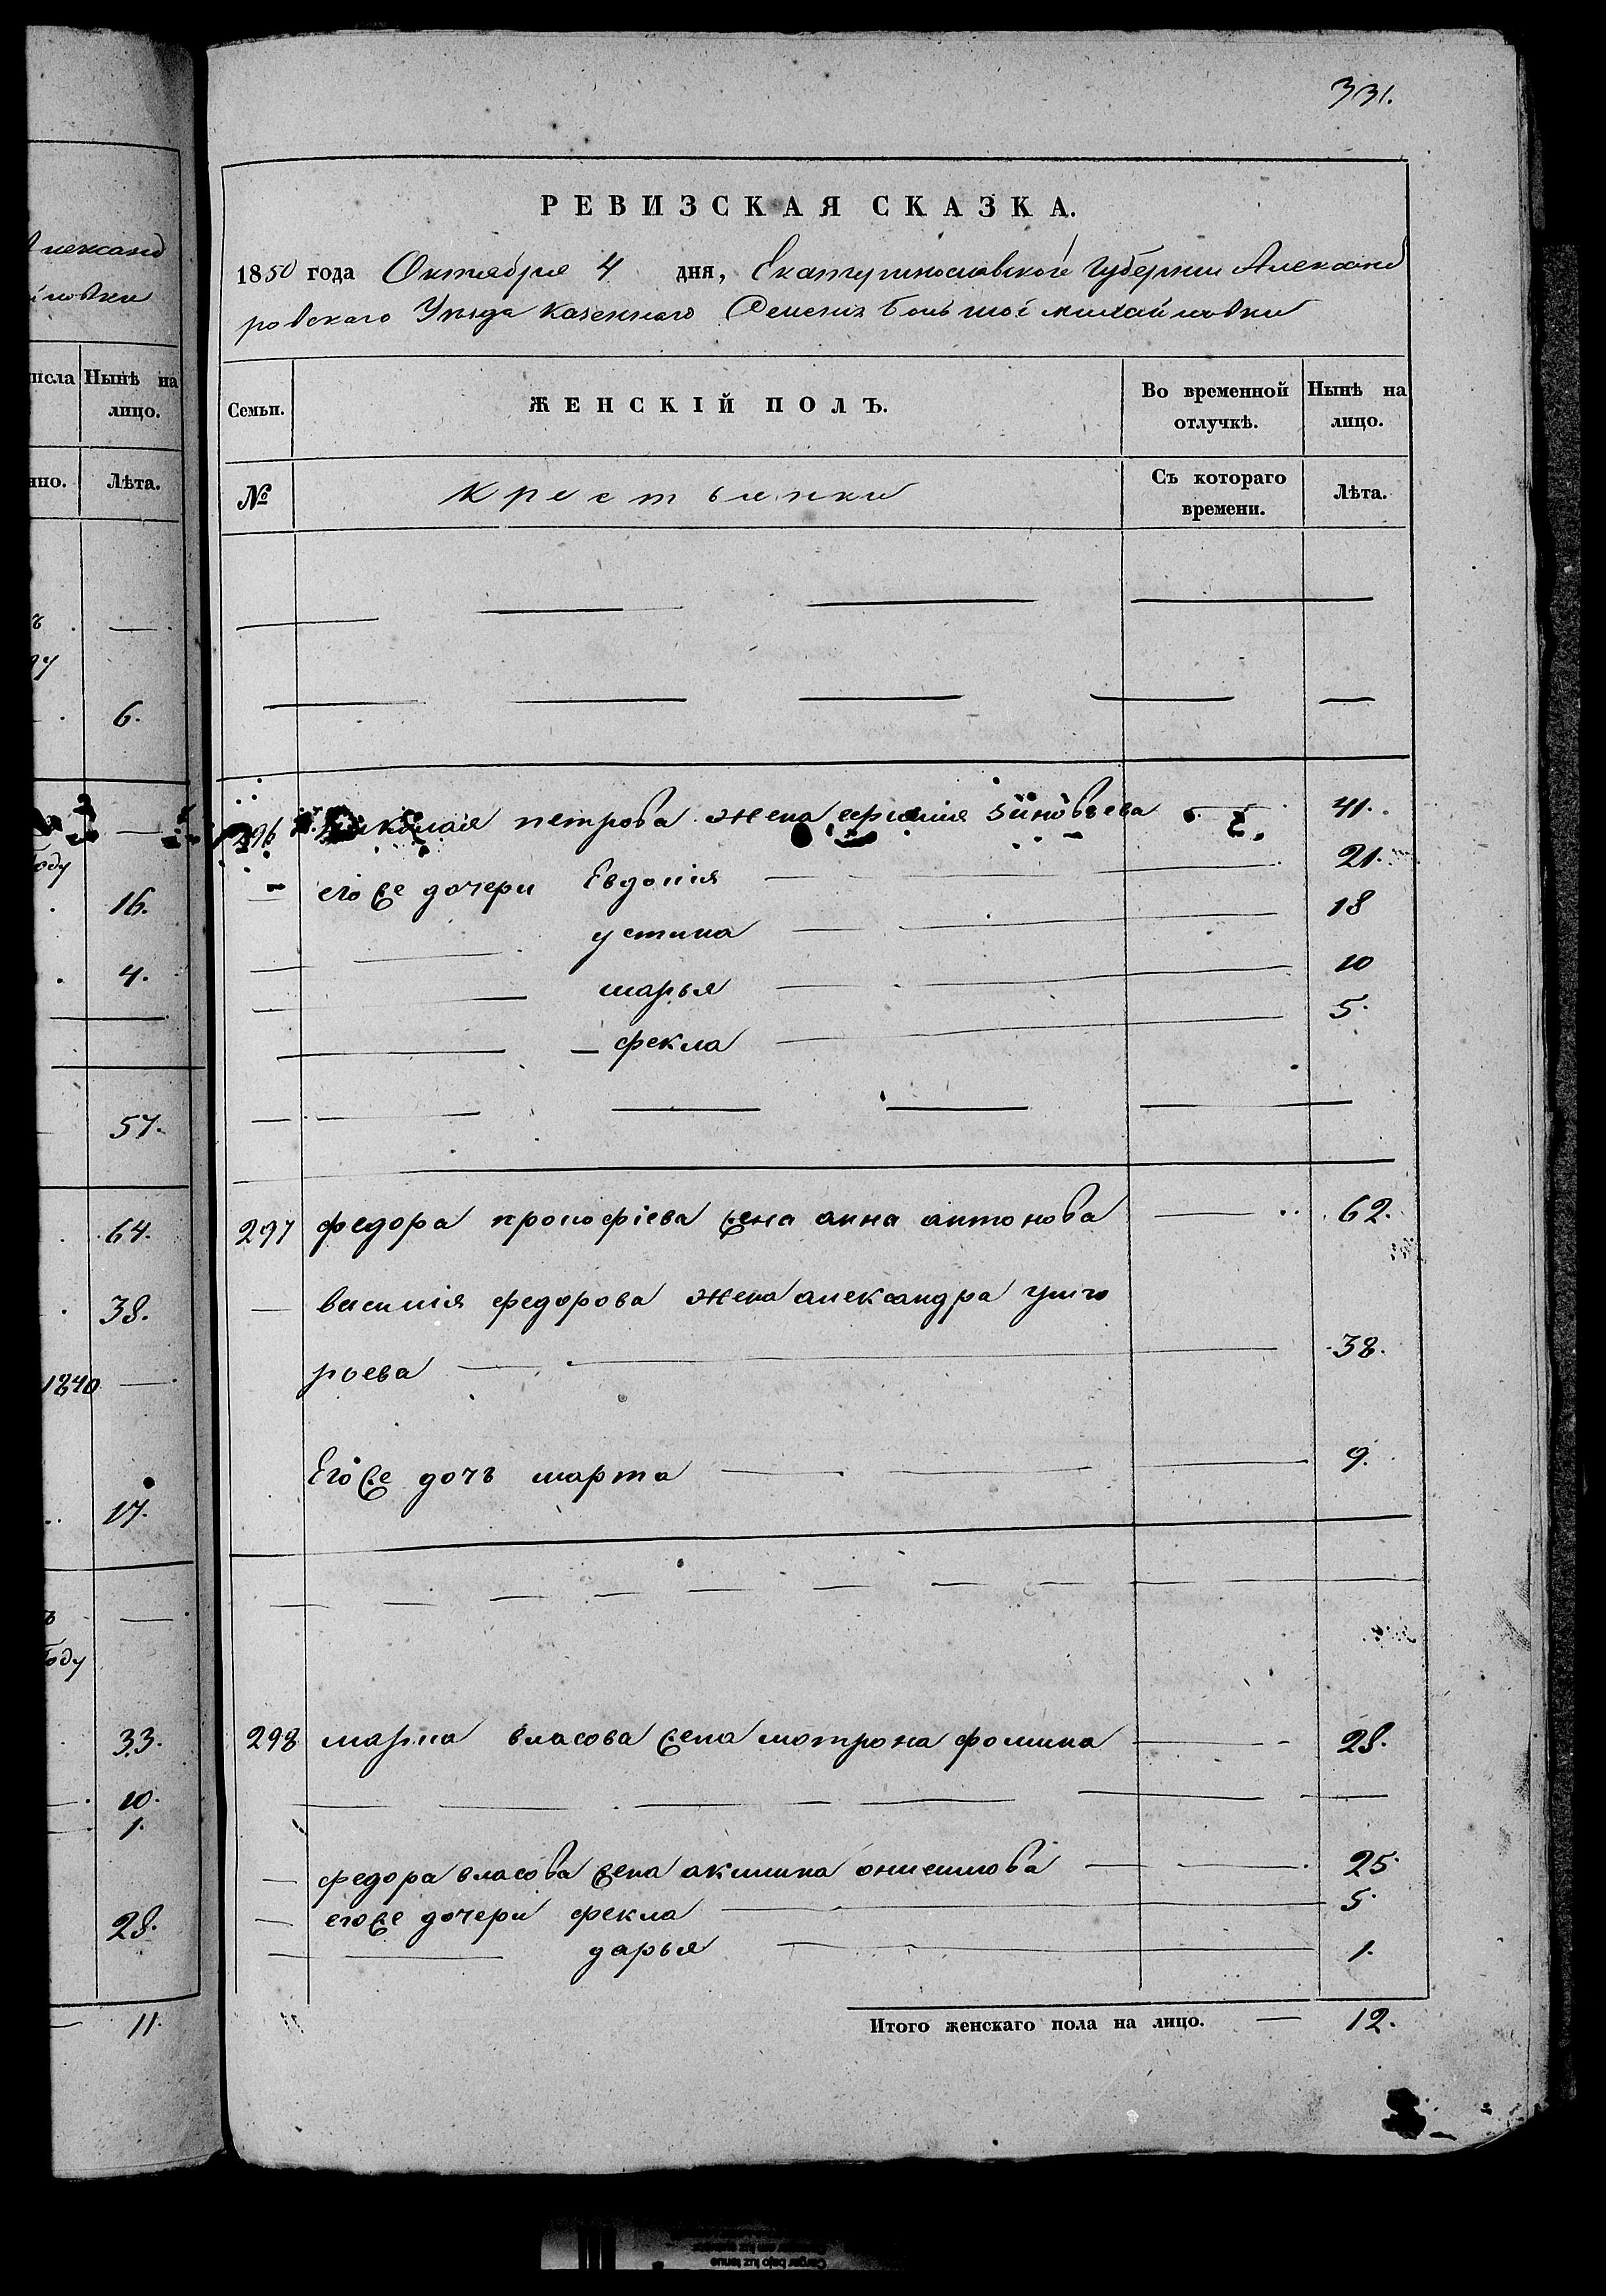 331.
лександ
йловки
РЕВИЗСКАЯ СКАЗКА.
1850 года Октября 4 дня, Екатеринославской губернии Александ
ровского Уезда Казенного Селения Большой михайловки
исла Нынѣ на лицо.
Семьи. ЖЕНСКІЙ ПОЛЪ. Во временной отлучкѣ. Нынѣ на лицо.
нно. Лѣта.
№ Крестьянки Съ котораго времени. Лѣта.
6.
296 Николая петрова жена ефимия зиновьева 41.
его же дочери Евдокия 21.
устина 18
марья 10
фекла 5.
году
16.
4.
57.
297 федора прокофіева жена анна антонова 62.
василия федорова жена александра григо
рьева 38.
Его же дочь марта 9.
64.
38.
1840
17.
году
298 марка власова жена мотрона фомина 28.
федора власова жена акилина онисимова 25.
его же дочери фекла 5.
дарья 1.
33.
10.
1.
28.
11.
Итого женскаго пола на лицо. 12.